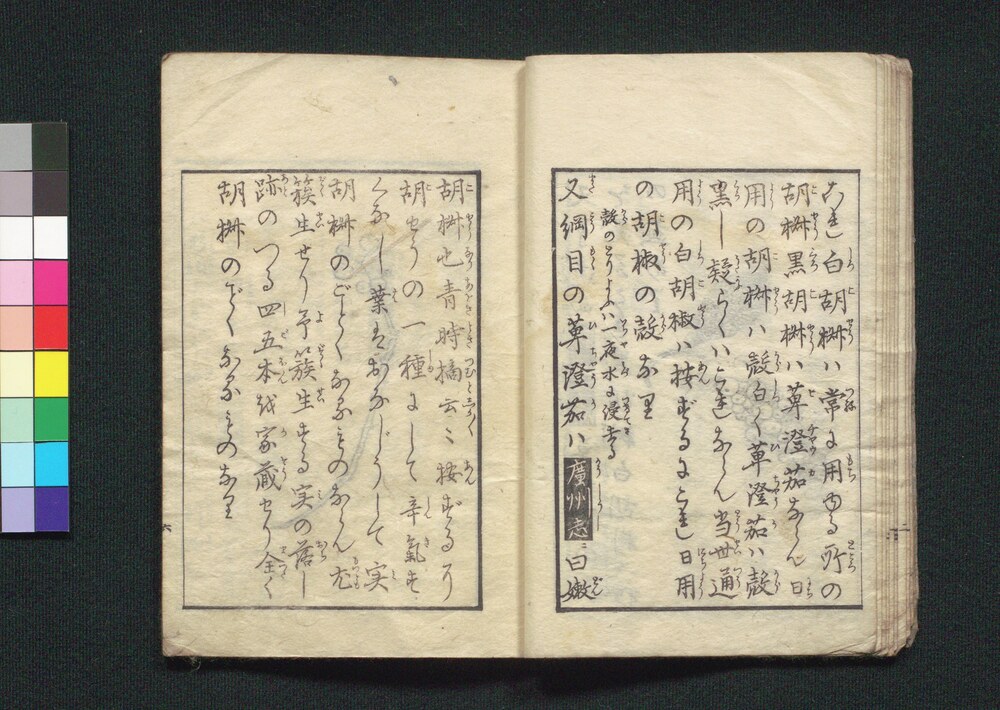 これ白胡椒ハ常に用ゆる所の
胡椒黒胡椒ハ蓽澄茄ならん日
用の胡椒ハ殻白く蓽澄茄ハ殻
黒し疑らくハこれならん当世通
用の白胡椒ハ按ずるにこれ日用
の胡椒の殻なり
殻のとりよふハ一夜水に浸去る
又綱目の蓽澄茄ハ廣州志ニ曰嫩
胡椒也青時摘云々按ずるに
胡せうの一種にして辛氣す
くなし葉はおなじうして実
胡椒のごとくなるものならん尤
簇生せり予簇生する実の落し
跡のつる四五本を家蔵せり全く
胡椒のごとくなるものなり
六